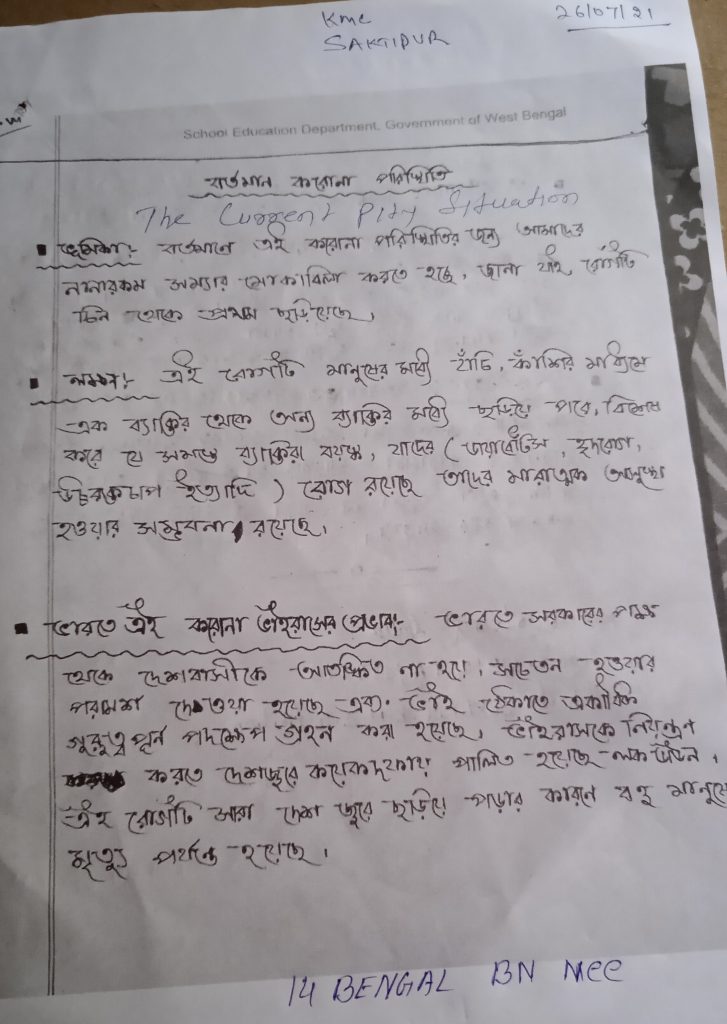 KMC
SAKTIPUR
26/07/21
School Education Department, Government of West Bengal
বর্তমান করোনা পরিস্থিতি
The Current Situation
ভূমিকা:- বর্তমানে এই করোনা পরিস্থিতির জন্য আমাদের
নানারকম সমস্যার মোকাবিলা করতে হচ্ছে, জানা যাই, রোগটি
চিন থেকে প্রথম ছড়িয়েছে।
লক্ষন:- এই রোগটি মানুষের মধ্যে হাঁচি, কাঁশির মাধ্যিমে
এক ব্যাক্তির থেকে অন্য ব্যাক্তির মধ্যে ছড়িয়ে পরে, বিশেষ
করে যে সমস্ত ব্যাক্তিরা বয়স্ক, যাদের (ডায়াবেটিস, হৃদরোগ,
উচ্চরক্তচাপ ইত্যাদি) রোগ রয়েছে তাদের মারাত্মক অসুস্থ
হওয়ার সম্ভবনা রয়েছে।
ভারতে এই করোনা ভাইরাসের প্রভাব:- ভারতে সরকারের পক্ষ
থেকে দেশবাসীকে আতঙ্কিত না হয়ে, সচেতন হওয়ার
পরামর্শ দেওয়া হয়েছে এবং ঠেকাতে একাধিক
গুরুত্বপূর্ন পদক্ষেপ গ্রহন করা হয়েছে, ভাইরাসকে নিয়ন্ত্রন
করতে দেশজুরে কয়েকদফায় পালিত হয়েছে লকডাউন,
এই রোগটি সারা দেশ জুরে ছড়িয়ে পড়ার কারনে বহু মানুষে
মৃত্যু পর্যন্ত হয়েছে।
14 BENGAL BN NCC